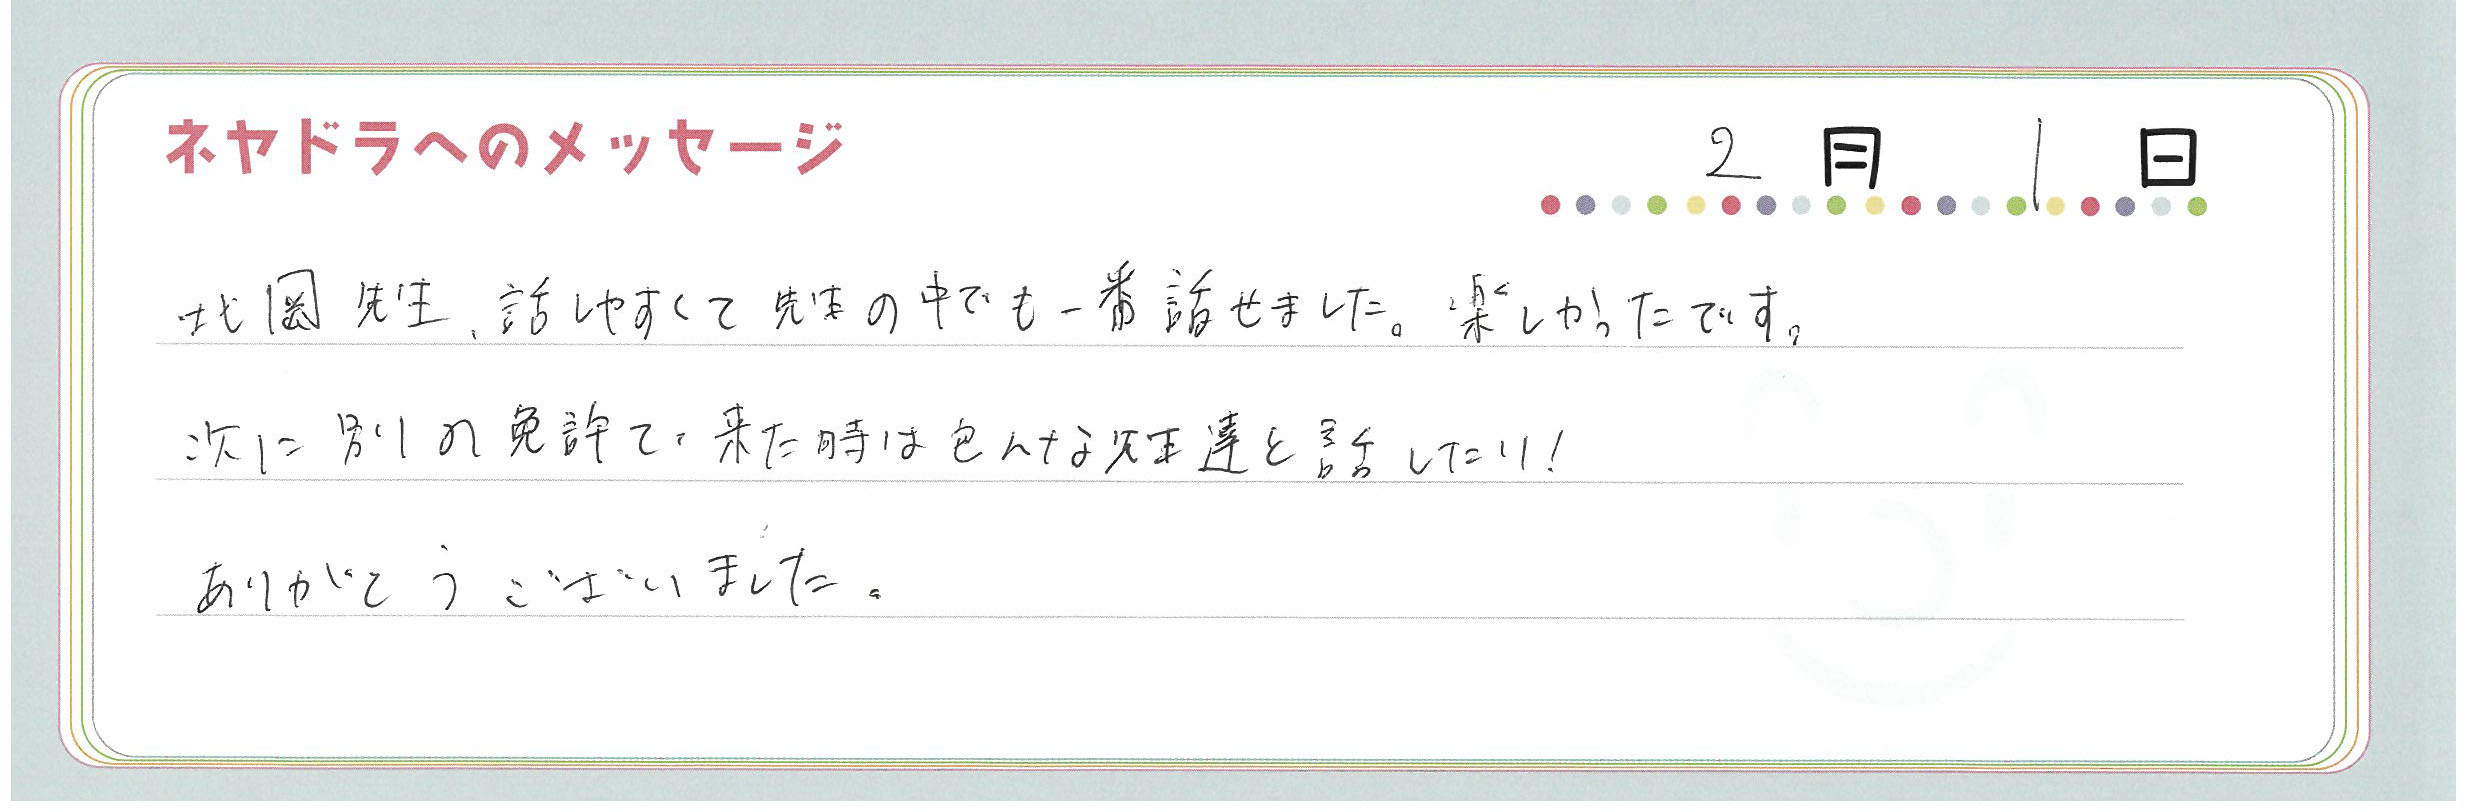 ネヤドラへのメッセージ
2月1日
北岡先生、話しやすくて先生の中でも一番話せました。楽しかったです。
次に別の免許で来た時は色んな先生達と話したい!
ありがとうございました。